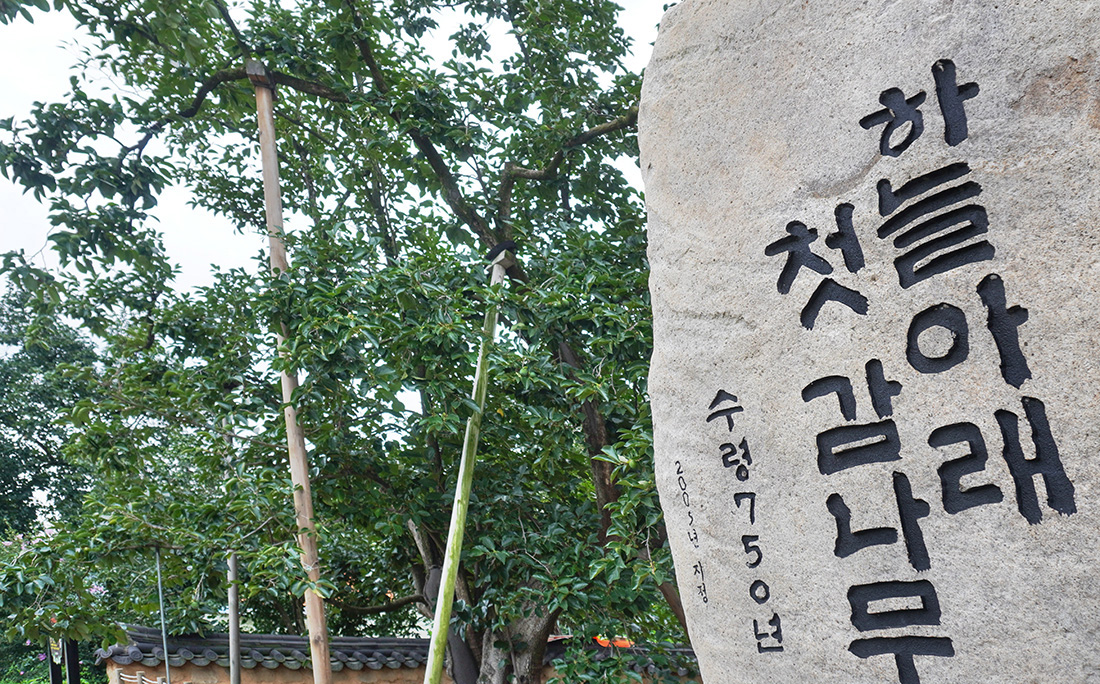 하늘아래
첫 감나무
수령 750년
2005년 지정